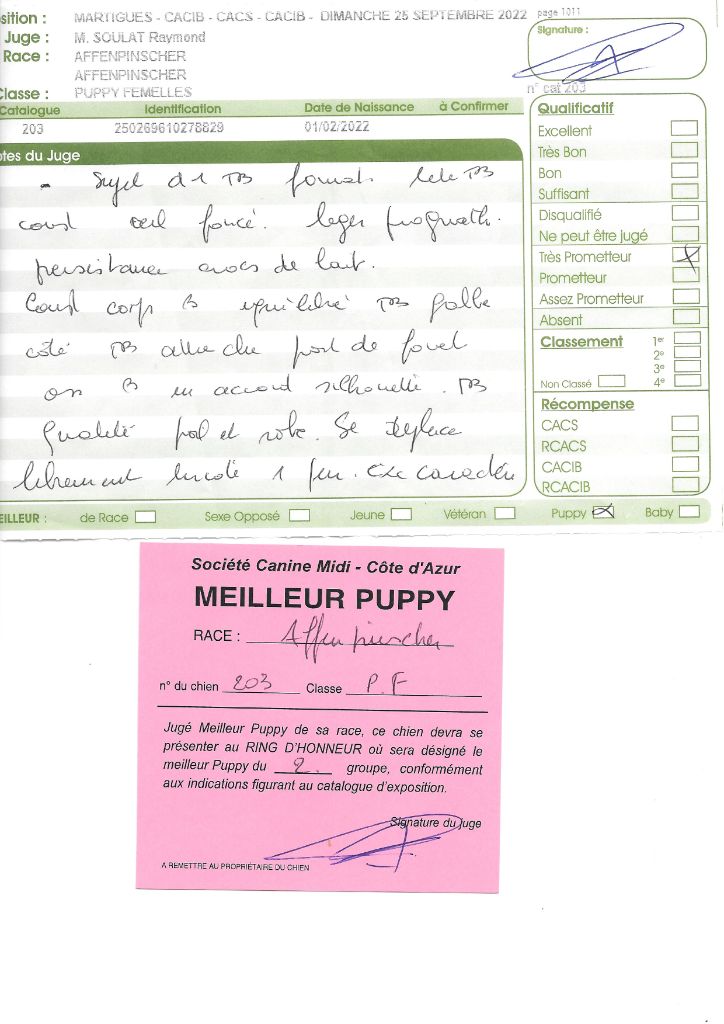 osition : MARTIGUES - CACIB - CACS - CACIB - DIMANCHE 25 SEPTEMBRE 2022 page 1011
Juge : M. SOULAT Raymond
Race : AFFENPINSCHER
AFFENPINSCHER
Classe : PUPPY FEMELLES
Signature :
n° cat 203
Catalogue Identification Date de Naissance à Confirmer
203 250269610278829 01/02/2022
otes du Juge
- Sujet d'1 TB format. tete TB
const oeil foncé. leger prognath.
persistance crocs de lait.
Const corps B equilibré TB galbe
côté TB attache port de fouet
os B en accord silhouette. TB
Qualité poil et robe. Se deplace
librement encore 1 peu.
Qualificatif
Excellent
Très Bon
Bon
Suffisant
Disqualifié
Ne peut être jugé
Très Prometteur
Prometteur
Assez Prometteur
Absent
Classement 1er
2e
3e
Non Classé 4e
Récompense
CACS
RCACS
CACIB
RCACIB
EILLEUR : de Race Sexe Opposé Jeune Vétéran Puppy Baby
Société Canine Midi - Côte d'Azur
MEILLEUR PUPPY
RACE : Affenpinscher
n° du chien 203 Classe P.F
Jugé Meilleur Puppy de sa race, ce chien devra se
présenter au RING D'HONNEUR où sera désigné le
meilleur Puppy du 2. groupe, conformément
aux indications figurant au catalogue d'exposition.
Signature du juge
A REMETTRE AU PROPRIÉTAIRE DU CHIEN